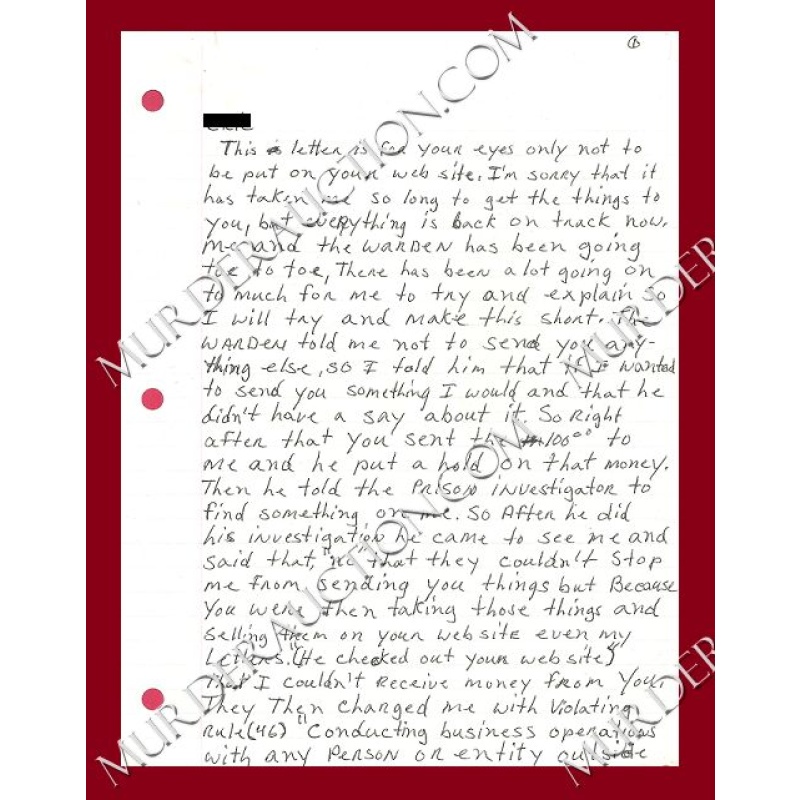 ①
This is letter is for your eyes only not to
be put on your web site. I'm sorry that it
has taken me so long to get the things to
you, but everything is back on track now.
Me and the WARDEN has been going
toe to toe, There has been a lot going on
to much for me to try and explain so
I will try and make this short. The
WARDEN told me not to send you any-
thing else, so I told him that if I wanted
to send you something I would and that he
didn't have a say about it. So Right
after that you sent the 100⁰⁰ to
me and he put a hold on that money.
Then he told the PRISON investigator to
find something on me. So After he did
his investigation he came to see me and
said that, "no that they couldn't stop
me from sending you things but Because
you were then taking those things and
selling them on your web site even my
Letters." (He checked out your web site)"
that I couldn't receive money from you.
They Then charged me with violating
Rule (46) "Conducting business operations
with any PERSON OR entity outside
MURDERAUCTION.COM
MURDERAUCTION.COM
MURDER
MURDER